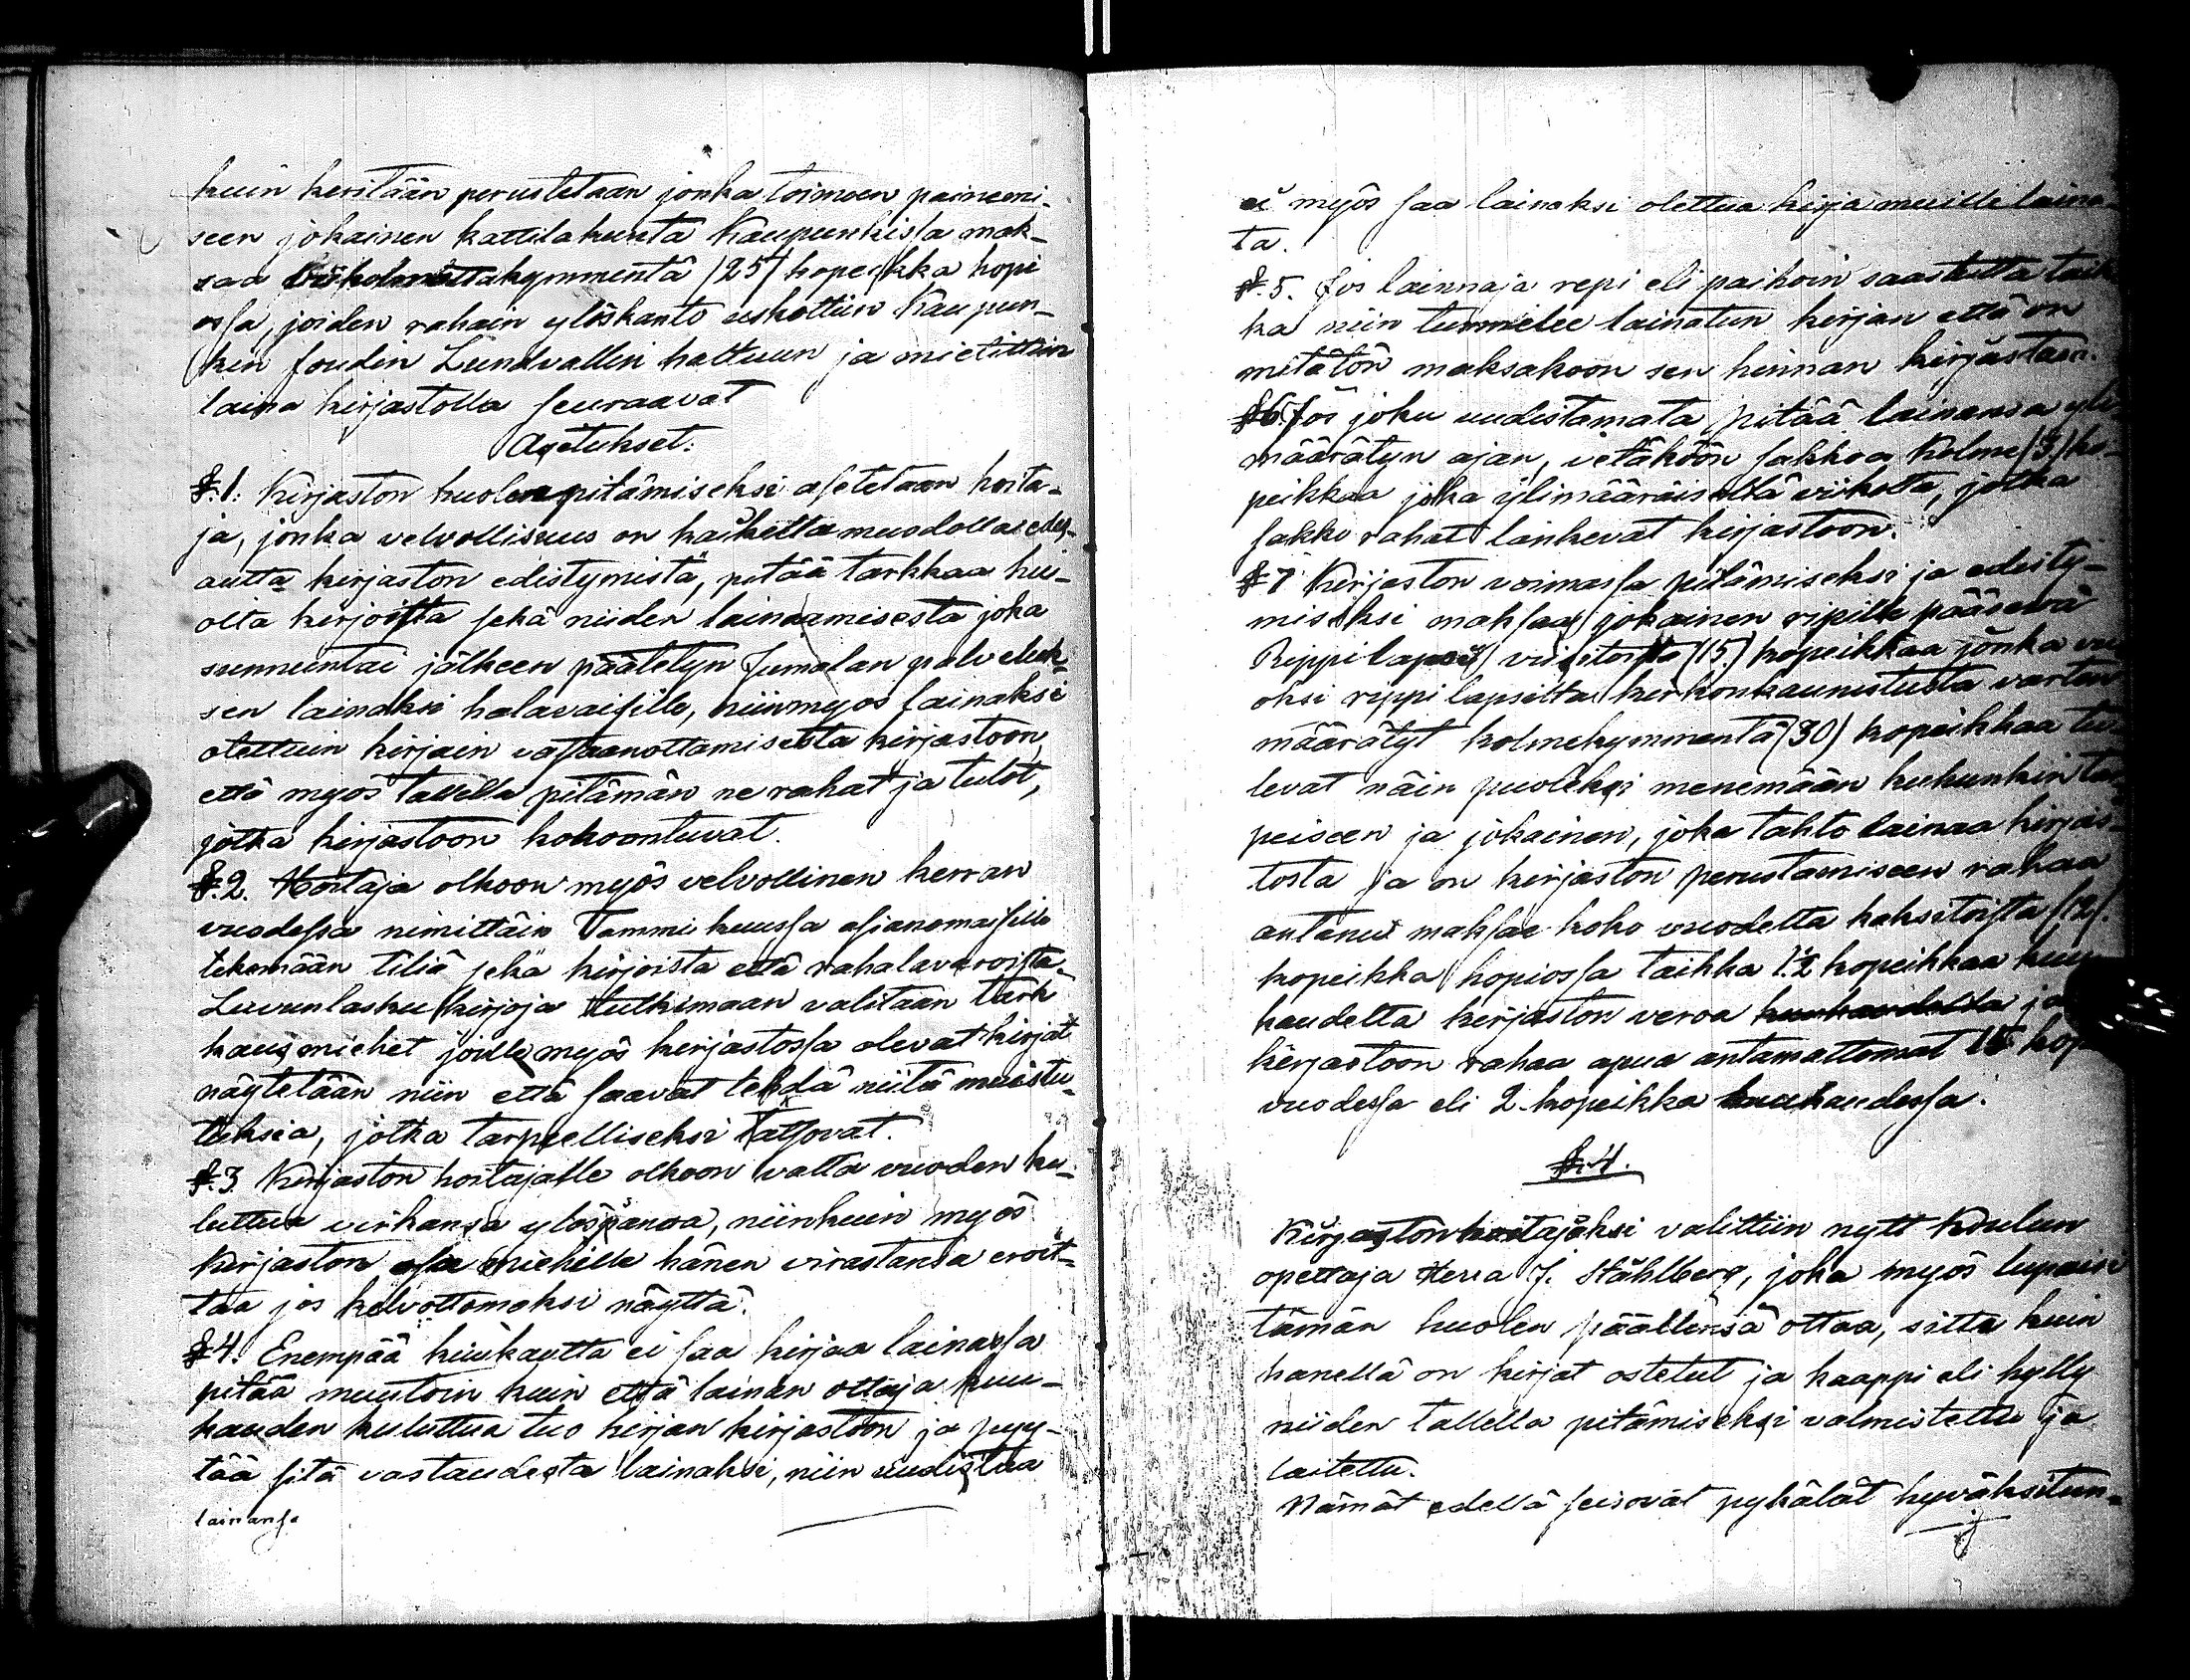 kuin keritään perustetaan jonka toimoen paineemi-
seen jokainen kattilakunta Kaupunkissa mak-
saa kymmentä (25) kopeikka hopi
ossa, joiden rahain ylöskanto uskottiin Kaupun-
kin foudin Lundvallin haltuun ja mielittiin
laina kirjastolla seuraavat
Asetukset:
§.1. Kirjaston huolenpitämiseksi asetetaan hoita-
ja, jonka velvollisuus on kaikella muodolla edes-
autta kirjaston edistymistä, pitää tarkkaa hu-
olta kirjoista sekä niiden lainaamisesta joka
sunnuntai jälkeen päätetyn Jumalan palveluk-
sen lainaksi halavaisille, niinmyös lainaksi
olettuin kirjain vastaanottamisesta kirjastoon,
että myös tallella pitämän ne rahat ja tulot,
jotka kirjastoon kokoontuvat.
§.2. Hoitaja olkoon myös velvollinen kerran
vuodessa nimittäin Tammi kuussa asianomaisille
tekemään tiliä sekä kirjoista että rahalavaroista.
Luvunlasku kirjoja tutkimaan valitaan tark
kausmiehet joille myös kirjastossa olevat kirjat
näytetään niin että saavat tehdä niitä muistu-
tuksia, jotka tarpeelliseksi katsovat.
§.3. Kirjaston hoitajalle olkoon valta vuoden ku-
luttua virkansa ylöspanna, niinkuin myös
Kirjaston osa miehille hänen virastansa eroit-
taa jos kelvottomaksi näyttä.
§4. Enempää kuukautta ei saa kirjaa lainassa
pitää muutoin kuin että lainan ottaja kuu-
kauden kuluttua tuo kirjan kirjastoon ja pyy-
tää sitä vastaudesta lainaksi, niin uudistaa
lainansa
ei myös saa lainaksi olettua kirja muille laina-
ta.
§.5. Jos lainnaja repi eli paikoin saastutta taik
ka niin turmelee lainatun kirjan että on
mitätön maksakoon sen hinnan kirjastoon.
§6. Jos joku uudistamata pitää lainansa yli
määrätyn ajan, vetäköön sakkoa Kolme (3) ko-
peikkaa joka ylimääräiseltä viikolta, jotka
sakko rahat lankevat kirjastoon.
§7 Kirjaston voimassa pitämiseksi ja edisty-
miseksi maksaa jokainen ripille pääsevä
Rippilapsi viisitoista (15.) kopeikkaa jonka vu
oksi rippi lapsilta kirkonkaunistusta varten
määrätyt kolmekymmentä (30) kopeikkaa tu-
levat näin puoleksi menemään kuhunkin tar
peiseen ja jokainen, joka tahto lainaa kirjas-
tosta ja on kirjaston perustamiseen rahaa
antanut maksaa koko vuodelta kaksitoista (12).
kopeikka hopiossa taikka 1.2 kopeikkaa kuu
kaudelta kirjaston veroa kuukaudelta ja
kirjastoon rahaa apua antamattomat 15 kop
vuodessa eli 2 kopeikka kuukaudessa.
§.4.
Kirjastonhoitajaksi valittiin nytt Koulun
opettaja Herra J. Ståhlberg, joka myös lupaisi
tämän huolen päällensä ottaa, sitta kuin
hanellä on kirjat ostetut ja kaappi eli hylly
niiden tallella pitämiseksi valmistettu ja
laitettu.
Nämät edellä seisovat pykälät hyväksitun-